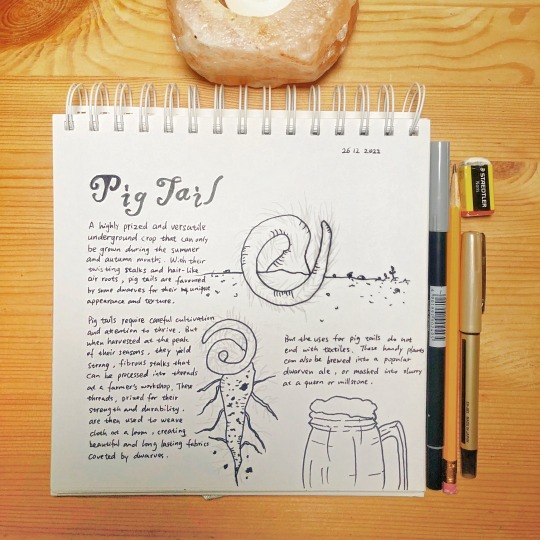 26 12 2022
Pig Tail
A highly prized and versatile
underground crop that can only
be grown during the summer
and autumn months. With their
twisting stalks and hair-like
air roots, pig tails are favoured
by some dwarves for their unique
appearance and texture.
Pig tails require careful cultivation
and attention to thrive. But
when harvested at the peak
of their seasons, they yield
strong, fibrous stalks that
can be processed into threads
at a farmer's workshop. These
threads, prized for their
strength and durability,
are then used to weave
cloth at a loom, creating
beautiful and long lasting fabrics
coveted by dwarves.
But the uses for pig tails do not
end with textiles. These handy plants
can also be brewed into a popular
dwarven ale, or mashed into slurry
at a quern or millstone.
STAEDTLER